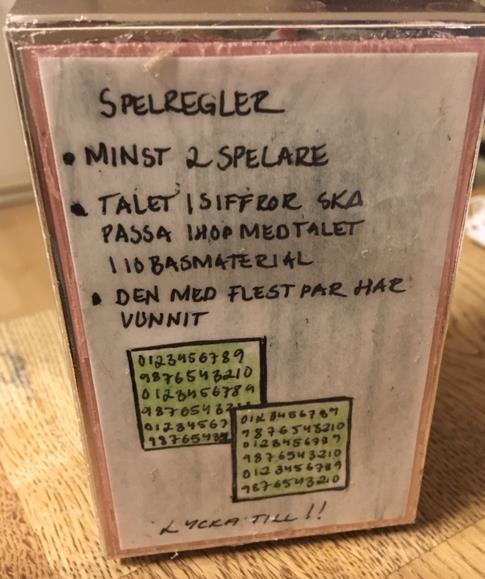 SPELREGLER
• MINST 2 SPELARE
• TALET I SIFFROR SKA
PASSA IHOP MED TALET
I 10 BASMATERIAL
• DEN MED FLEST PAR HAR
VUNNIT
0123456789
9876543210
0123456789
98765432
01234567
987654321
0123456789
9876543210
0123456789
9876543210
0123456789
9876543210
LYCKA TILL!!